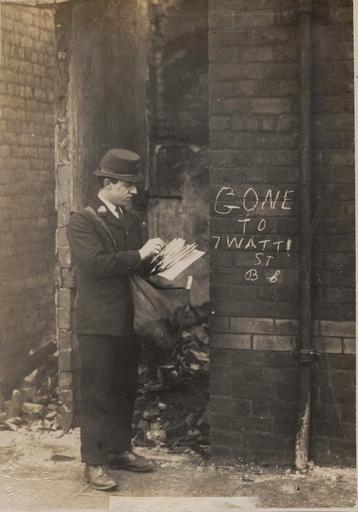 GONE
TO
7 WATT
ST
B 6